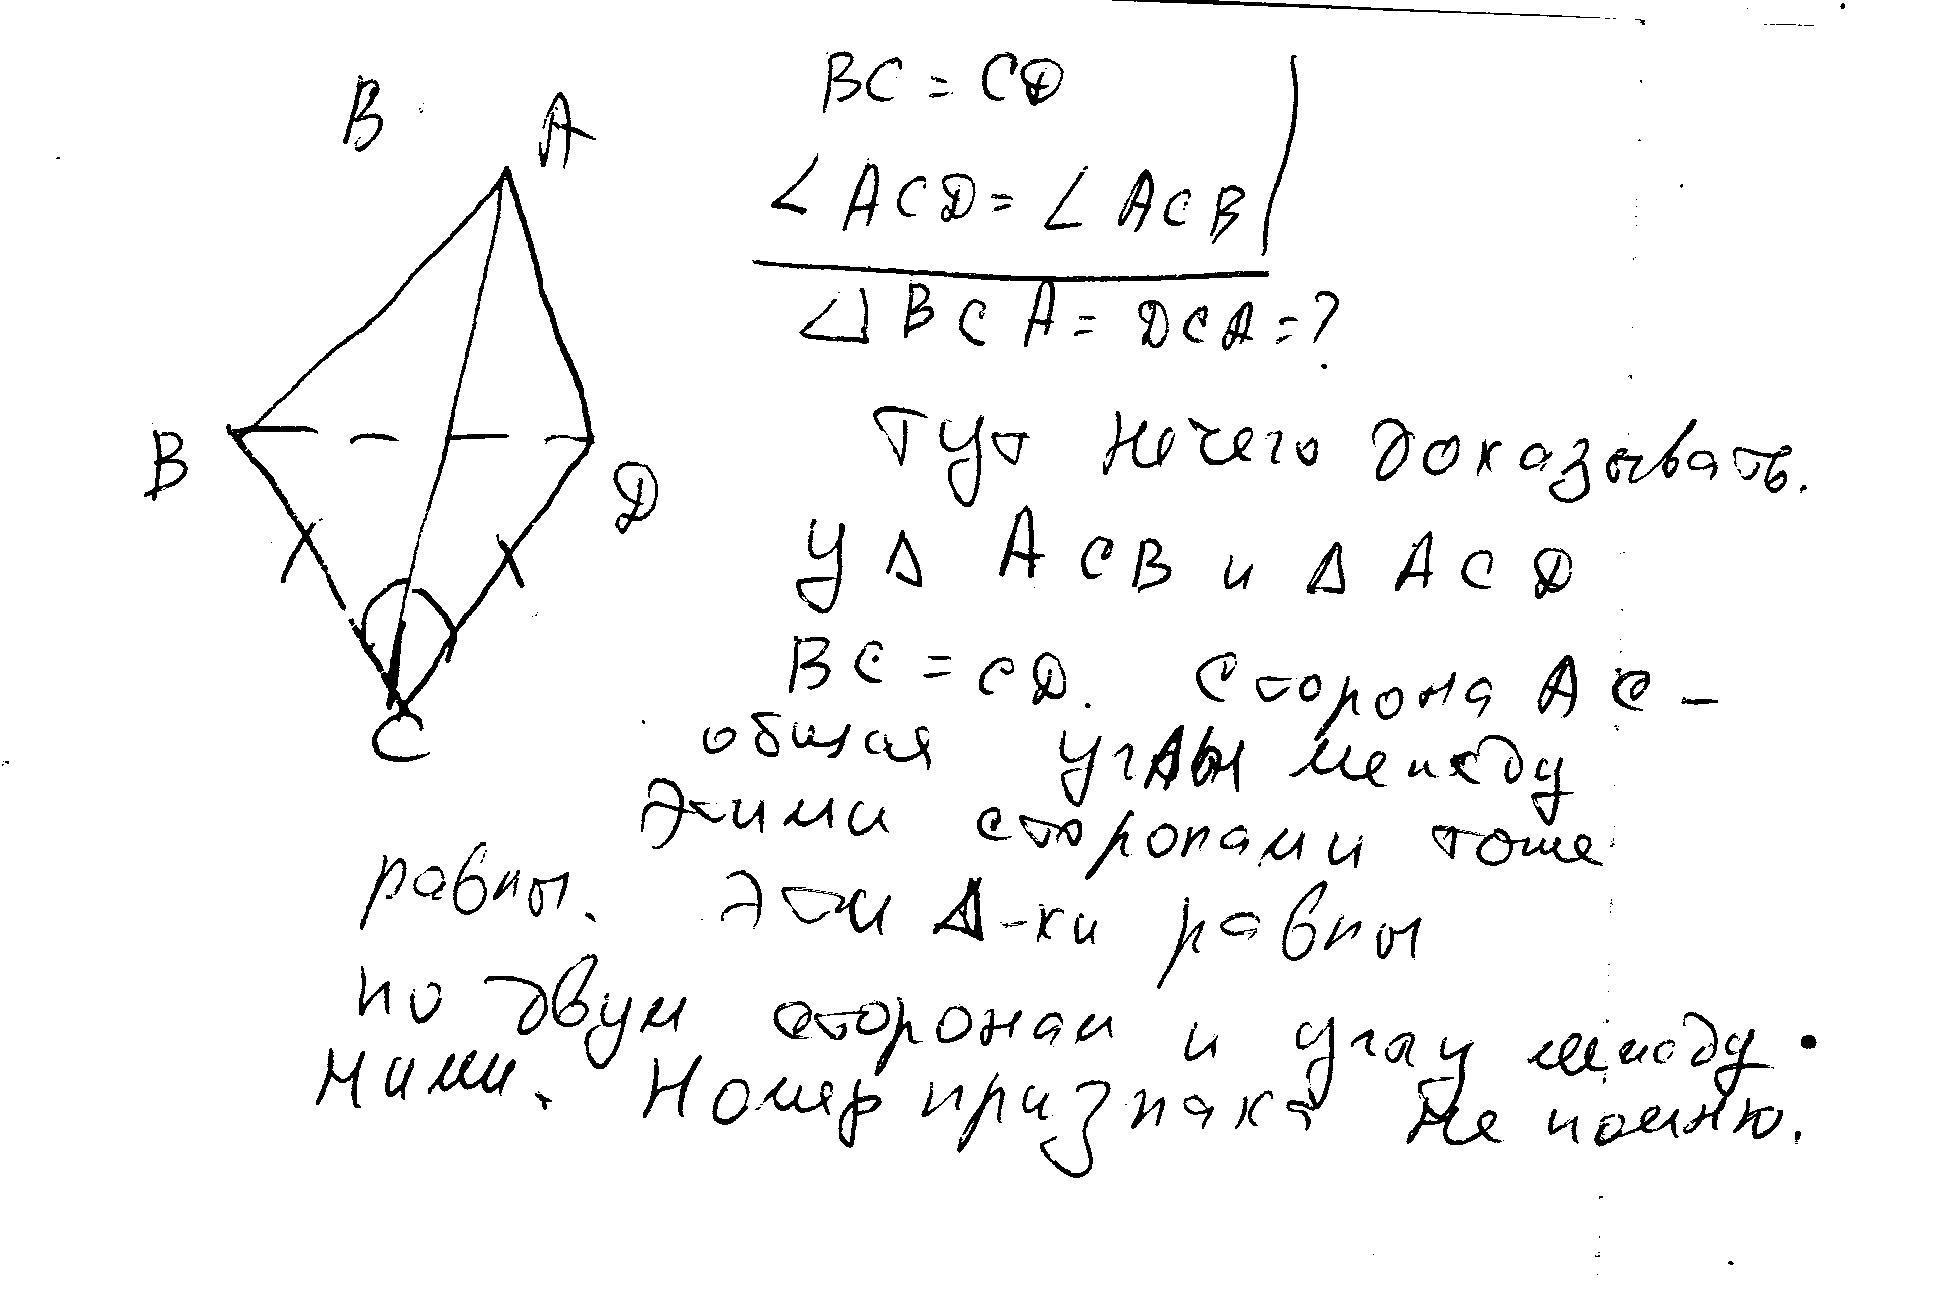 B A
BC = CD
∠ ACD = ∠ ACB
⊿ BCA = DCA = ?
B
D
C
Тут нечего доказывать.
У Δ ACB и Δ ACD
BC = CD. Сторона AC -
общая углы между
этими сторонами тоже
равны. Эти Δ-ки равны
по двум сторонам и углу между
ними. Номер признака не помню.